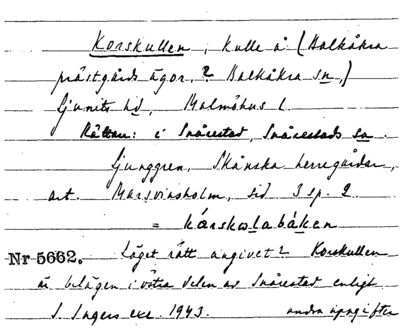 Korskullen, kulle å (Balkåkra
prästgårds ägor,? Balkåkra sn,)
Ljunits hd, Malmöhus l.
Rättar: i Snårestad, Snårestads sn.
Ljunggren, Skånska herregårdar,
art. Marsvinsholm, sid 3 sp. 2.
= kårskolabåken
Nr 5662. Läget rätt angivet? Korskullen
är belägen i västra delen av Snårestad enligt
I. Ingers exc. 1943. andra uppgifter